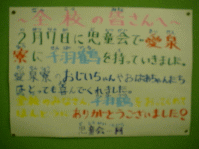 ～全校の皆さんへ～
2月17日に児童会で愛泉
寮に千羽鶴を持っていきました。
愛泉寮のおじいちゃんやおばあちゃんたち
はとっても喜んでくれました。
全校のみなさん千羽鶴をおってくれて
ほんとうにありがとうございました？
児童会一同